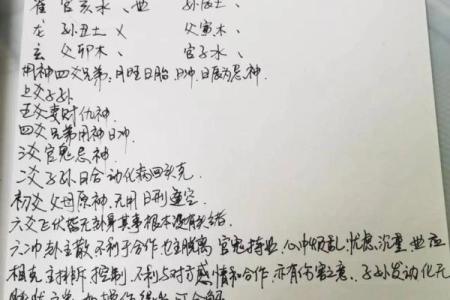 雀 官亥水、世 孙辰土、
龙 孙丑土 乂 父寅木、
玄 父卯木、 官子水、
用神四爻兄弟,月旺日胎,日冲,日辰为忌神.
上爻子孙
五爻妻财仇神.
四爻兄弟用神日冲.
3爻官鬼忌神.
二爻子孙日合动化寅回头克.
初爻父母原神.无用日刑遁空.
六爻飞伏皆无卦身其事根本没有头绪.
六冲卦主散不利于合作,也主脱离 官鬼持世 心中烦乱,忧虑,沉重,世应
相克主排斥 控制,不利与对方感情和合作,亦有伤害之意、子孙发动化无